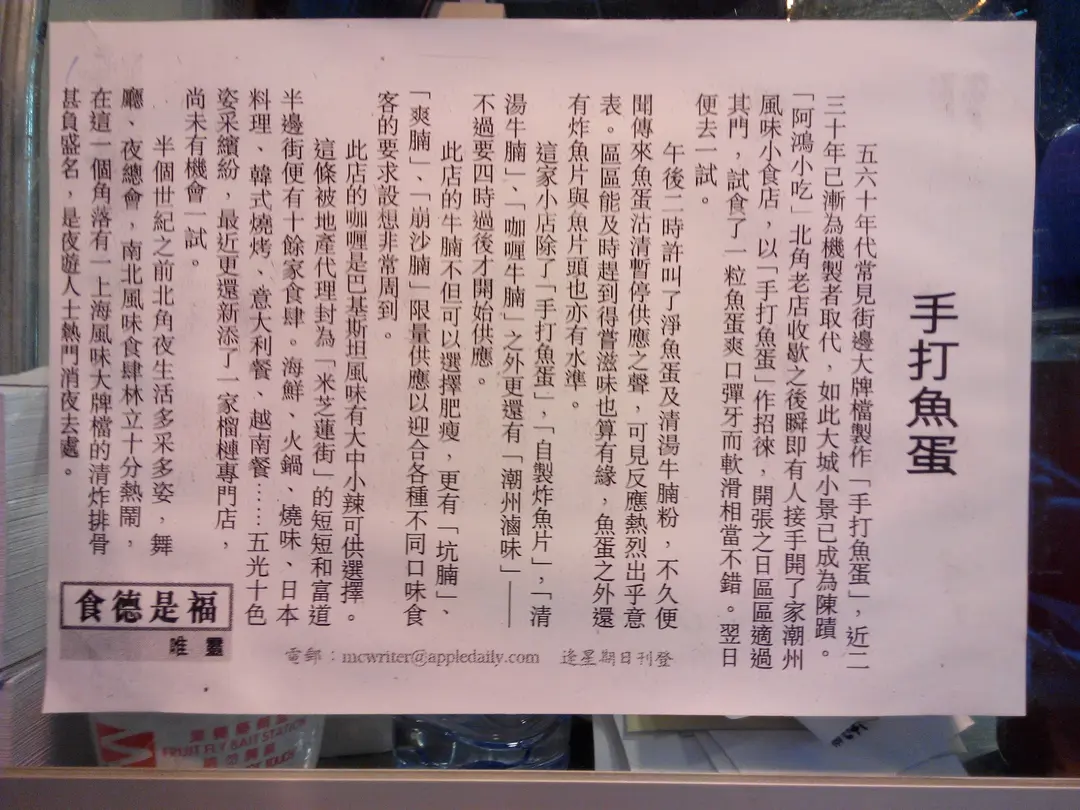 手打魚蛋
五六十年代常見街邊大牌檔製作「手打魚蛋」，近二
三十年已漸為機製者取代，如此大城小景已成為陳蹟。
「阿鴻小吃」北角老店收歇之後瞬即有人接手開了家潮州
風味小食店，以「手打魚蛋」作招徠，開張之日區區適過
其門，試食了一粒魚蛋爽口彈牙而軟滑相當不錯。翌日
便去一試。
午後二時許叫了淨魚蛋及清湯牛腩粉，不久便
聞傳來魚蛋沽清暫停供應之聲，可見反應熱烈出乎意
表。區區能及時趕到得嘗滋味也算有緣，魚蛋之外還
有炸魚片與魚片頭也亦有水準。
這家小店除了「手打魚蛋」，「自製炸魚片」，「清
湯牛腩」、「咖喱牛腩」之外更還有「潮州滷味」——
不過要四時過後才開始供應。
此店的牛腩不但可以選擇肥瘦，更有「坑腩」、
「爽腩」、「崩沙腩」限量供應以迎合各種不同口味食
客的要求設想非常周到。
此店的咖喱是巴基斯坦風味有大中小辣可供選擇。
這條被地產代理封為「米芝蓮街」的短短和富道
半邊街便有十餘家食肆。海鮮、火鍋、燒味、日本
料理、韓式燒烤、意大利餐、越南餐……五光十色
姿采繽紛，最近更還新添了一家榴槤專門店，
尚未有機會一試。
半個世紀之前北角夜生活多采多姿，舞
廳、夜總會，南北風味食肆林立十分熱鬧，
在這一個角落有一上海風味大牌檔的清炸排骨
甚負盛名，是夜遊人士熱門消夜去處。
食德是福
唯靈
電郵：mcwriter@appledaily.com 逢星期日刊登
FRUIT FLY BAIT STATION